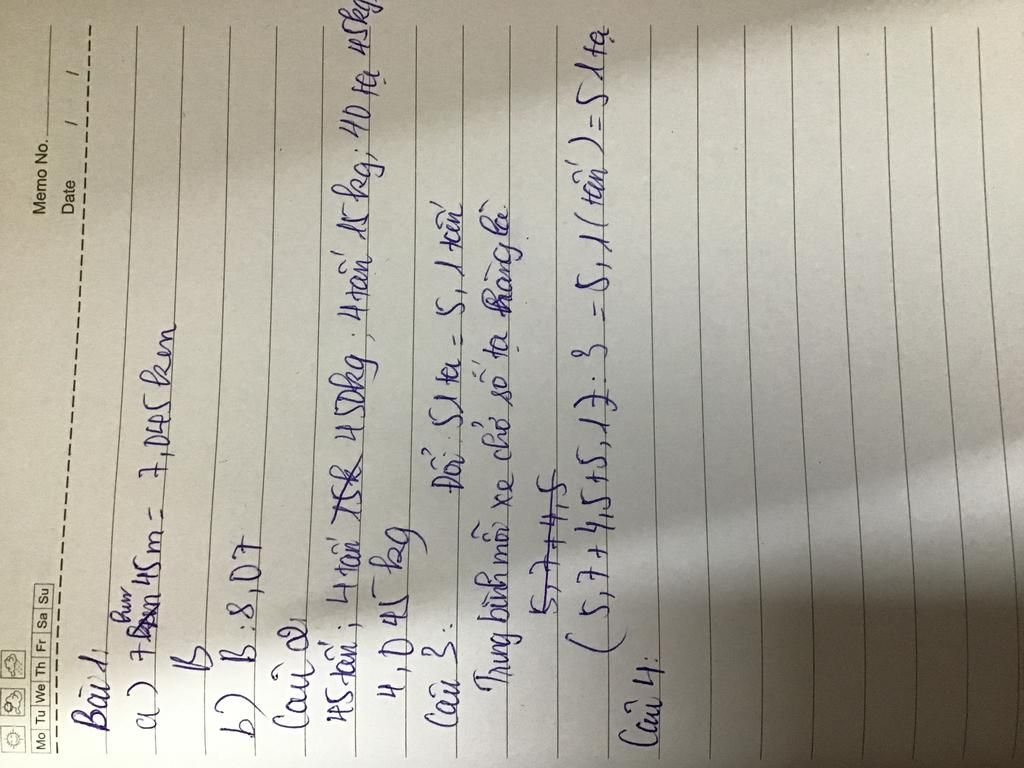 Memo No.
Mo Tu We Th Fr Sa Su
Date / /
Bài 1:
a) 7km 45m = 7,045 km
B
b) B: 8,07
Câu 2:
45 tấn; 4 tấn 450kg; 4 tấn 15kg; 40 tạ 45kg
4,045 kg
Câu 3: Đổi: 51 tạ = 5,1 tấn
Trung bình mỗi xe chở số tạ hàng là
5,7 + 4,5
(5,7 + 4,5 + 5,1): 3 = 5,1 (tấn) = 51 tạ
Câu 4: